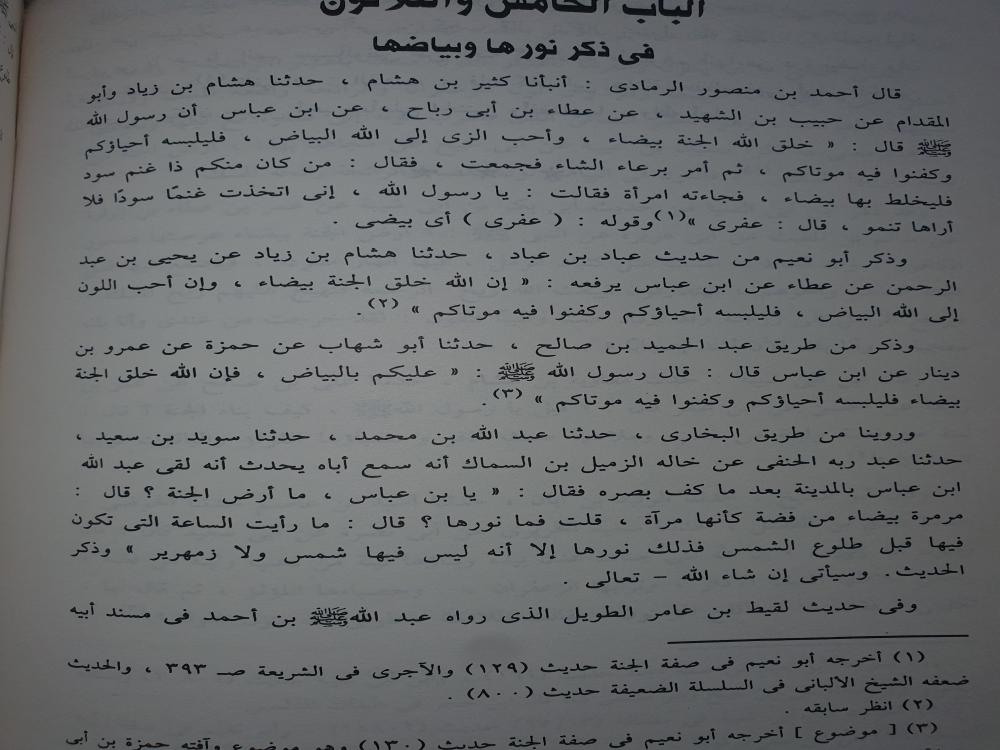 الباب الخامس والثلاثون
فى ذكر نورها وبياضها
قال أحمد بن منصور الرمادى : أنبأنا كثير بن هشام ، حدثنا هشام بن زياد وأبو
المقدام عن حبيب بن الشهيد ، عن عطاء بن أبى رباح ، عن ابن عباس أن رسول الله
ﷺ قال : « خلق الله الجنة بيضاء ، وأحب الزى إلى الله البياض ، فليلبسه أحياؤكم
وكفنوا فيه موتاكم ، ثم أمر برعاء الشاء فجمعت ، فقال : من كان منكم ذا غنم سود
فليخلط بها بيضاء ، فجاءته امرأة فقالت : يا رسول الله ، إنى اتخذت غنمًا سودًا فلا
أراها تنمو ، قال : عفرى »(١)وقوله : ( عفرى ) أى بيضى .
وذكر أبو نعيم من حديث عباد بن عباد ، حدثنا هشام بن زياد عن يحيى بن عبد
الرحمن عن عطاء عن ابن عباس يرفعه : « إن الله خلق الجنة بيضاء ، وإن أحب اللون
إلى الله البياض ، فليلبسه أحياؤكم وكفنوا فيه موتاكم » (٢).
وذكر من طريق عبد الحميد بن صالح ، حدثنا أبو شهاب عن حمزة عن عمرو بن
دينار عن ابن عباس قال : قال رسول الله ﷺ : « عليكم بالبياض ، فإن الله خلق الجنة
بيضاء فليلبسه أحياؤكم وكفنوا فيه موتاكم » (٣).
وروينا من طريق البخارى ، حدثنا عبد الله بن محمد ، حدثنا سويد بن سعيد ،
حدثنا عبد ربه الحنفى عن خاله الزميل بن السماك أنه سمع أباه يحدث أنه لقى عبد الله
ابن عباس بالمدينة بعد ما كف بصره فقال : « يا بن عباس ، ما أرض الجنة ؟ قال :
مرمرة بيضاء من فضة كأنها مرآة ، قلت فما نورها ؟ قال : ما رأيت الساعة التى تكون
فيها قبل طلوع الشمس فذلك نورها إلا أنه ليس فيها شمس ولا زمهرير » وذكر
الحديث. وسيأتى إن شاء الله – تعالى .
وفى حديث لقيط بن عامر الطويل الذى رواه عبد اللهﷺ بن أحمد فى مسند أبيه
(١) أخرجه أبو نعيم فى صفة الجنة حديث (١٢٩) والآجرى فى الشريعة صـ ٣٩٣ ، والحديث
ضعفه الشيخ الألبانى فى السلسلة الضعيفة حديث (٨٠٠) .
(٢) انظر سابقه .
(٣) [ موضوع ] أخرجه أبو نعيم فى صفة الجنة حديث (١٣٠) وهو موضوع وآفته حمزة بن أبى